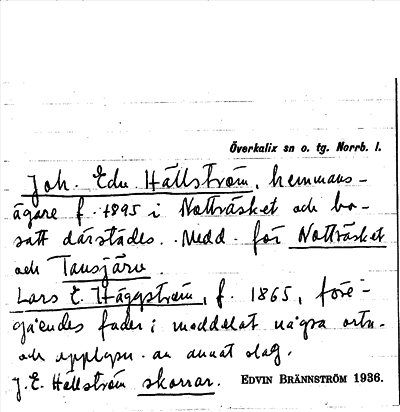 Överkalix sn o. tg. Norrb. l.
Joh. Edv. Hällström, hemmans-
ägare f. 1895 i Nottråsket och bo-
satt därstädes. Medd. för Nottråsket
och Tansjärv.
Lars E. Häggström, f. 1865, före-
gåendes fader; meddelat några ortn.
och upplysn. av annat slag.
J. E. Hällström skorrar. EDVIN BRÄNNSTRÖM 1936.